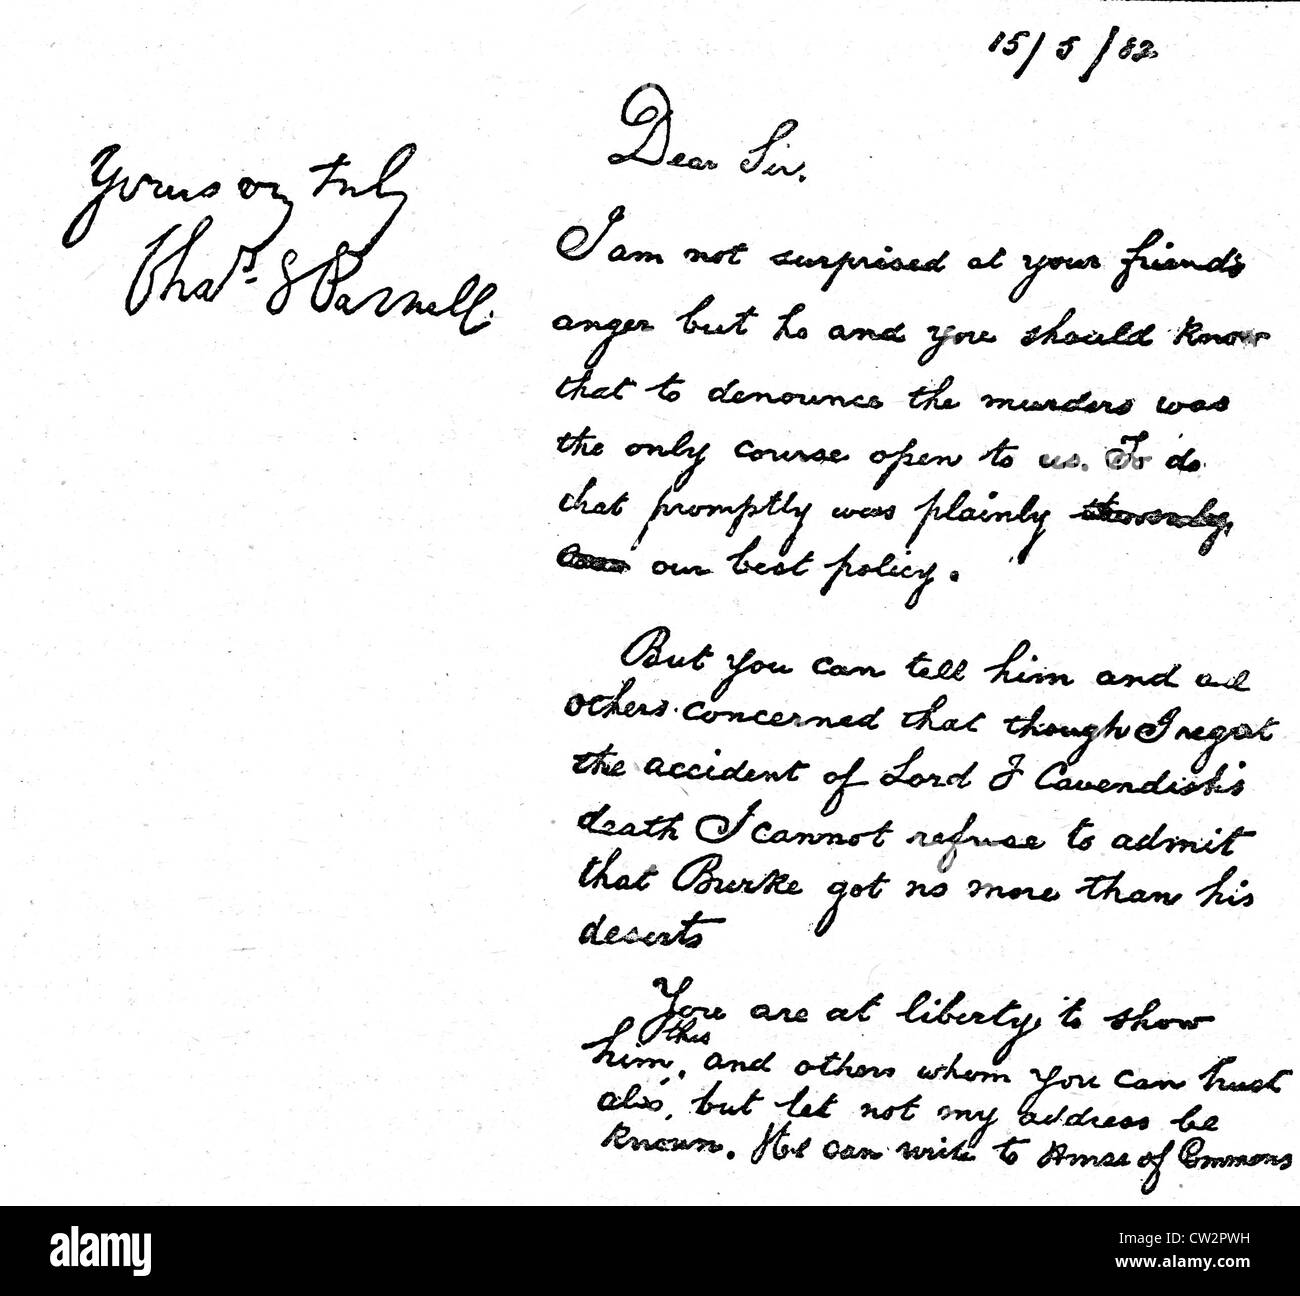 15/5/82
Dear Sir,
I am not surprised at your friend's
anger but he and you should know
that to denounce the murders was
the only course open to us. To do
that promptly was plainly
our best policy.
But you can tell him and all
others concerned that though I regret
the accident of Lord F Cavendish's
death I cannot refuse to admit
that Burke got no more than his
deserts
You are at liberty to show
him this, and others whom you can trust
also, but let not my address be
known. He can write to House of Commons
Yours very truly
Chas. S Parnell.
alamy
Image ID: CW2PWH
www.alamy.com